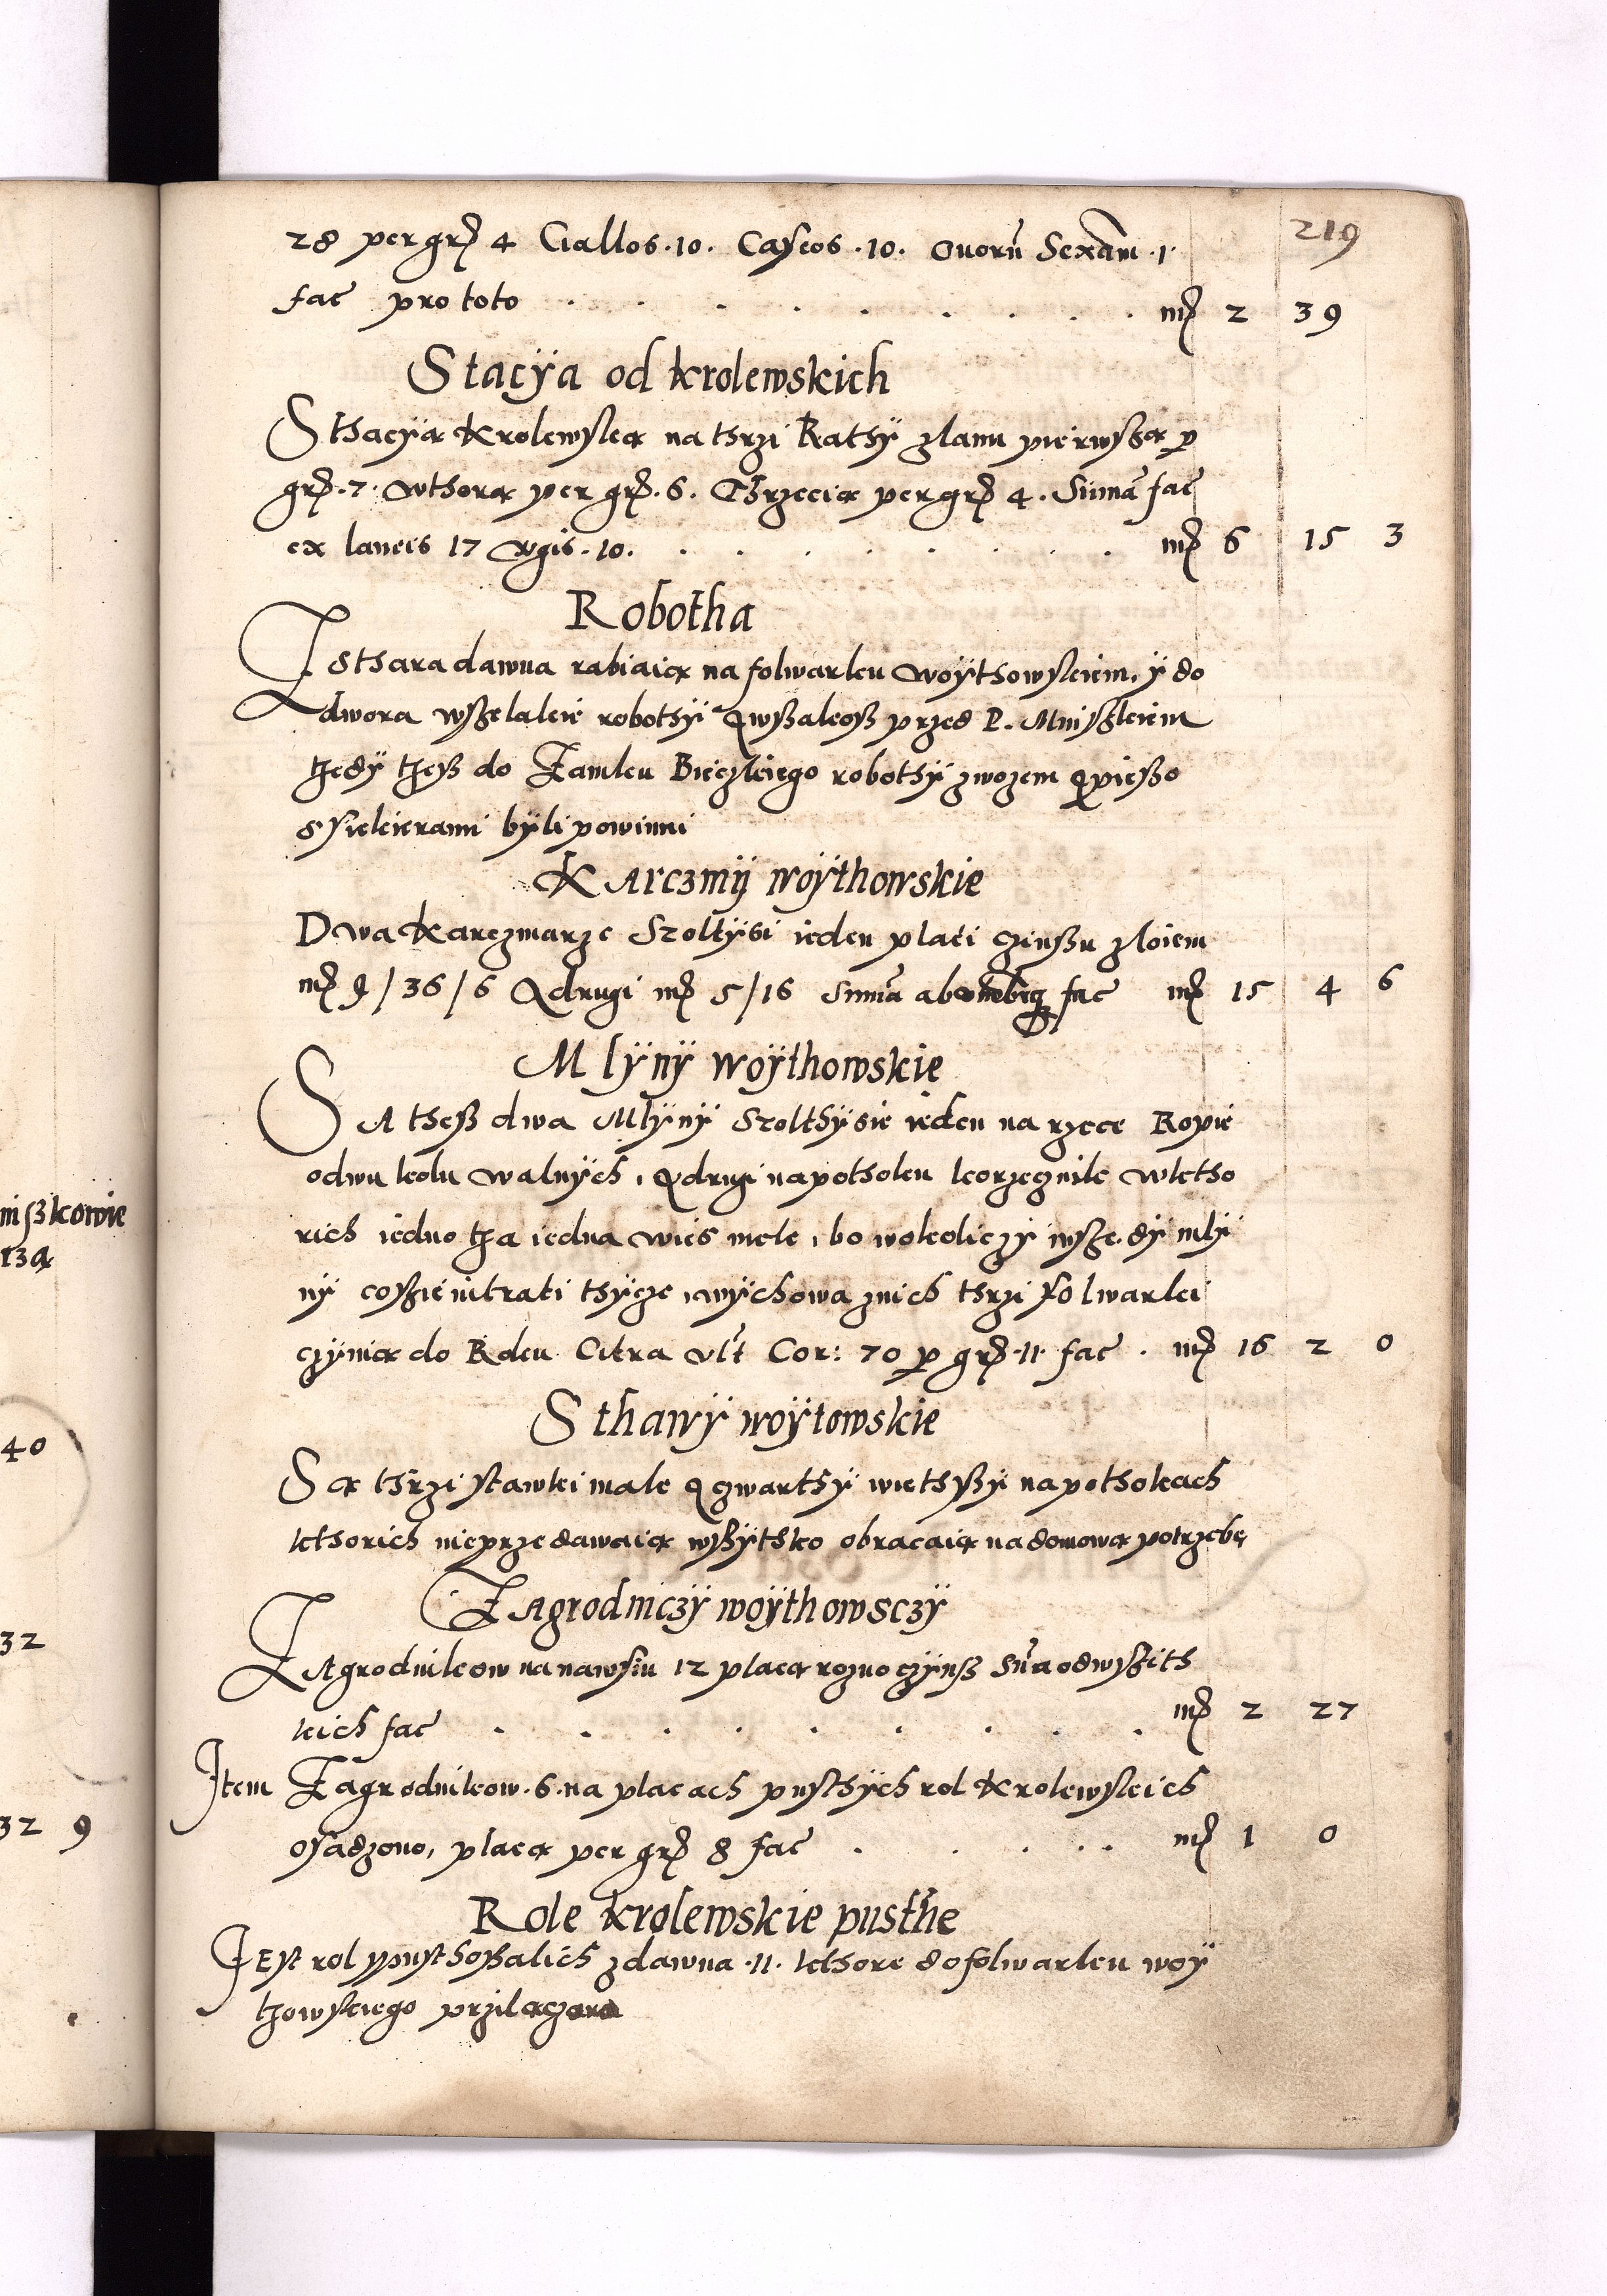 219
28 per grs 4 Gallos ·10· Caseos ·10· Ouoru Sexam ·1·
fac pro toto . . . . . . . . mrc 2 39
Stacÿa od krolewskich
Sthacÿą Krolewską na thrzi Rathÿ z lanu pierwszą per
grs ·7· wthorą per grs ·6· Thrzecią per grs 4 · Suma fac
ex laneis 17 Virgis ·10· . . . . . . . mrc 6 15 3
Robotha
Z sthara dawna rabiaią na folwarku woÿthowskiem, ÿ do
dwora wszelakie robothÿ A wszakosz przed P. Mniszkiem
tzedÿ tzesz do Zamku Bieczkiego robothÿ z wozem A pieszo
s siekierami bÿli powinni
Karczmÿ woÿthowskie
Dwa Karczmarze Szoltÿsi ieden plati czinszu z loiem
mrc 9/36/6 A drugi mrc 5/16 Suma ab fac mrc 15 4 6
Mlÿnÿ woÿthowskie
SA thesz dwa Mlÿnÿ Szolthÿsie ieden na rzece Ropie
o dwu kolu walnÿch, A drugi na pothoku korzecznik w ktho
rich iedno tza iedna wies mele, bo w okoliczÿ wsze.dÿ mlÿ
nÿ co szie vitrati thÿcze, wÿchowa z nich thrzi folwarki
czÿnią do Roku Citra vlt Cor: 70 per grs ·11· fac . mrc 16 2 0
Sthawÿ woÿtowskie
Są thrzi stawki male A czwarthÿ wiethszÿ na pothokach
kthorich nie przedawaią wszÿthko obracaią na domową potrzebę
Zagrodniczÿ woÿthowsczÿ
ZAgrodnikow na nawsiu 12 placą rozno czÿnsz Sum̃a od wszith
kich fac . . . . . . . . . mrc 2 27
Item Zagrodnikow ·6· na placach pusthÿch rol Krolewskich
osadzono, placą per grs 8 fac . . . . . mrc 1 0
Role krolewskie pusthe
IEst rol ÿ pusthoszalich z dawna ·11· kthore do folwarku woÿ
tzowskiego przilączono
niszkowie
rzą
40
32
32 9